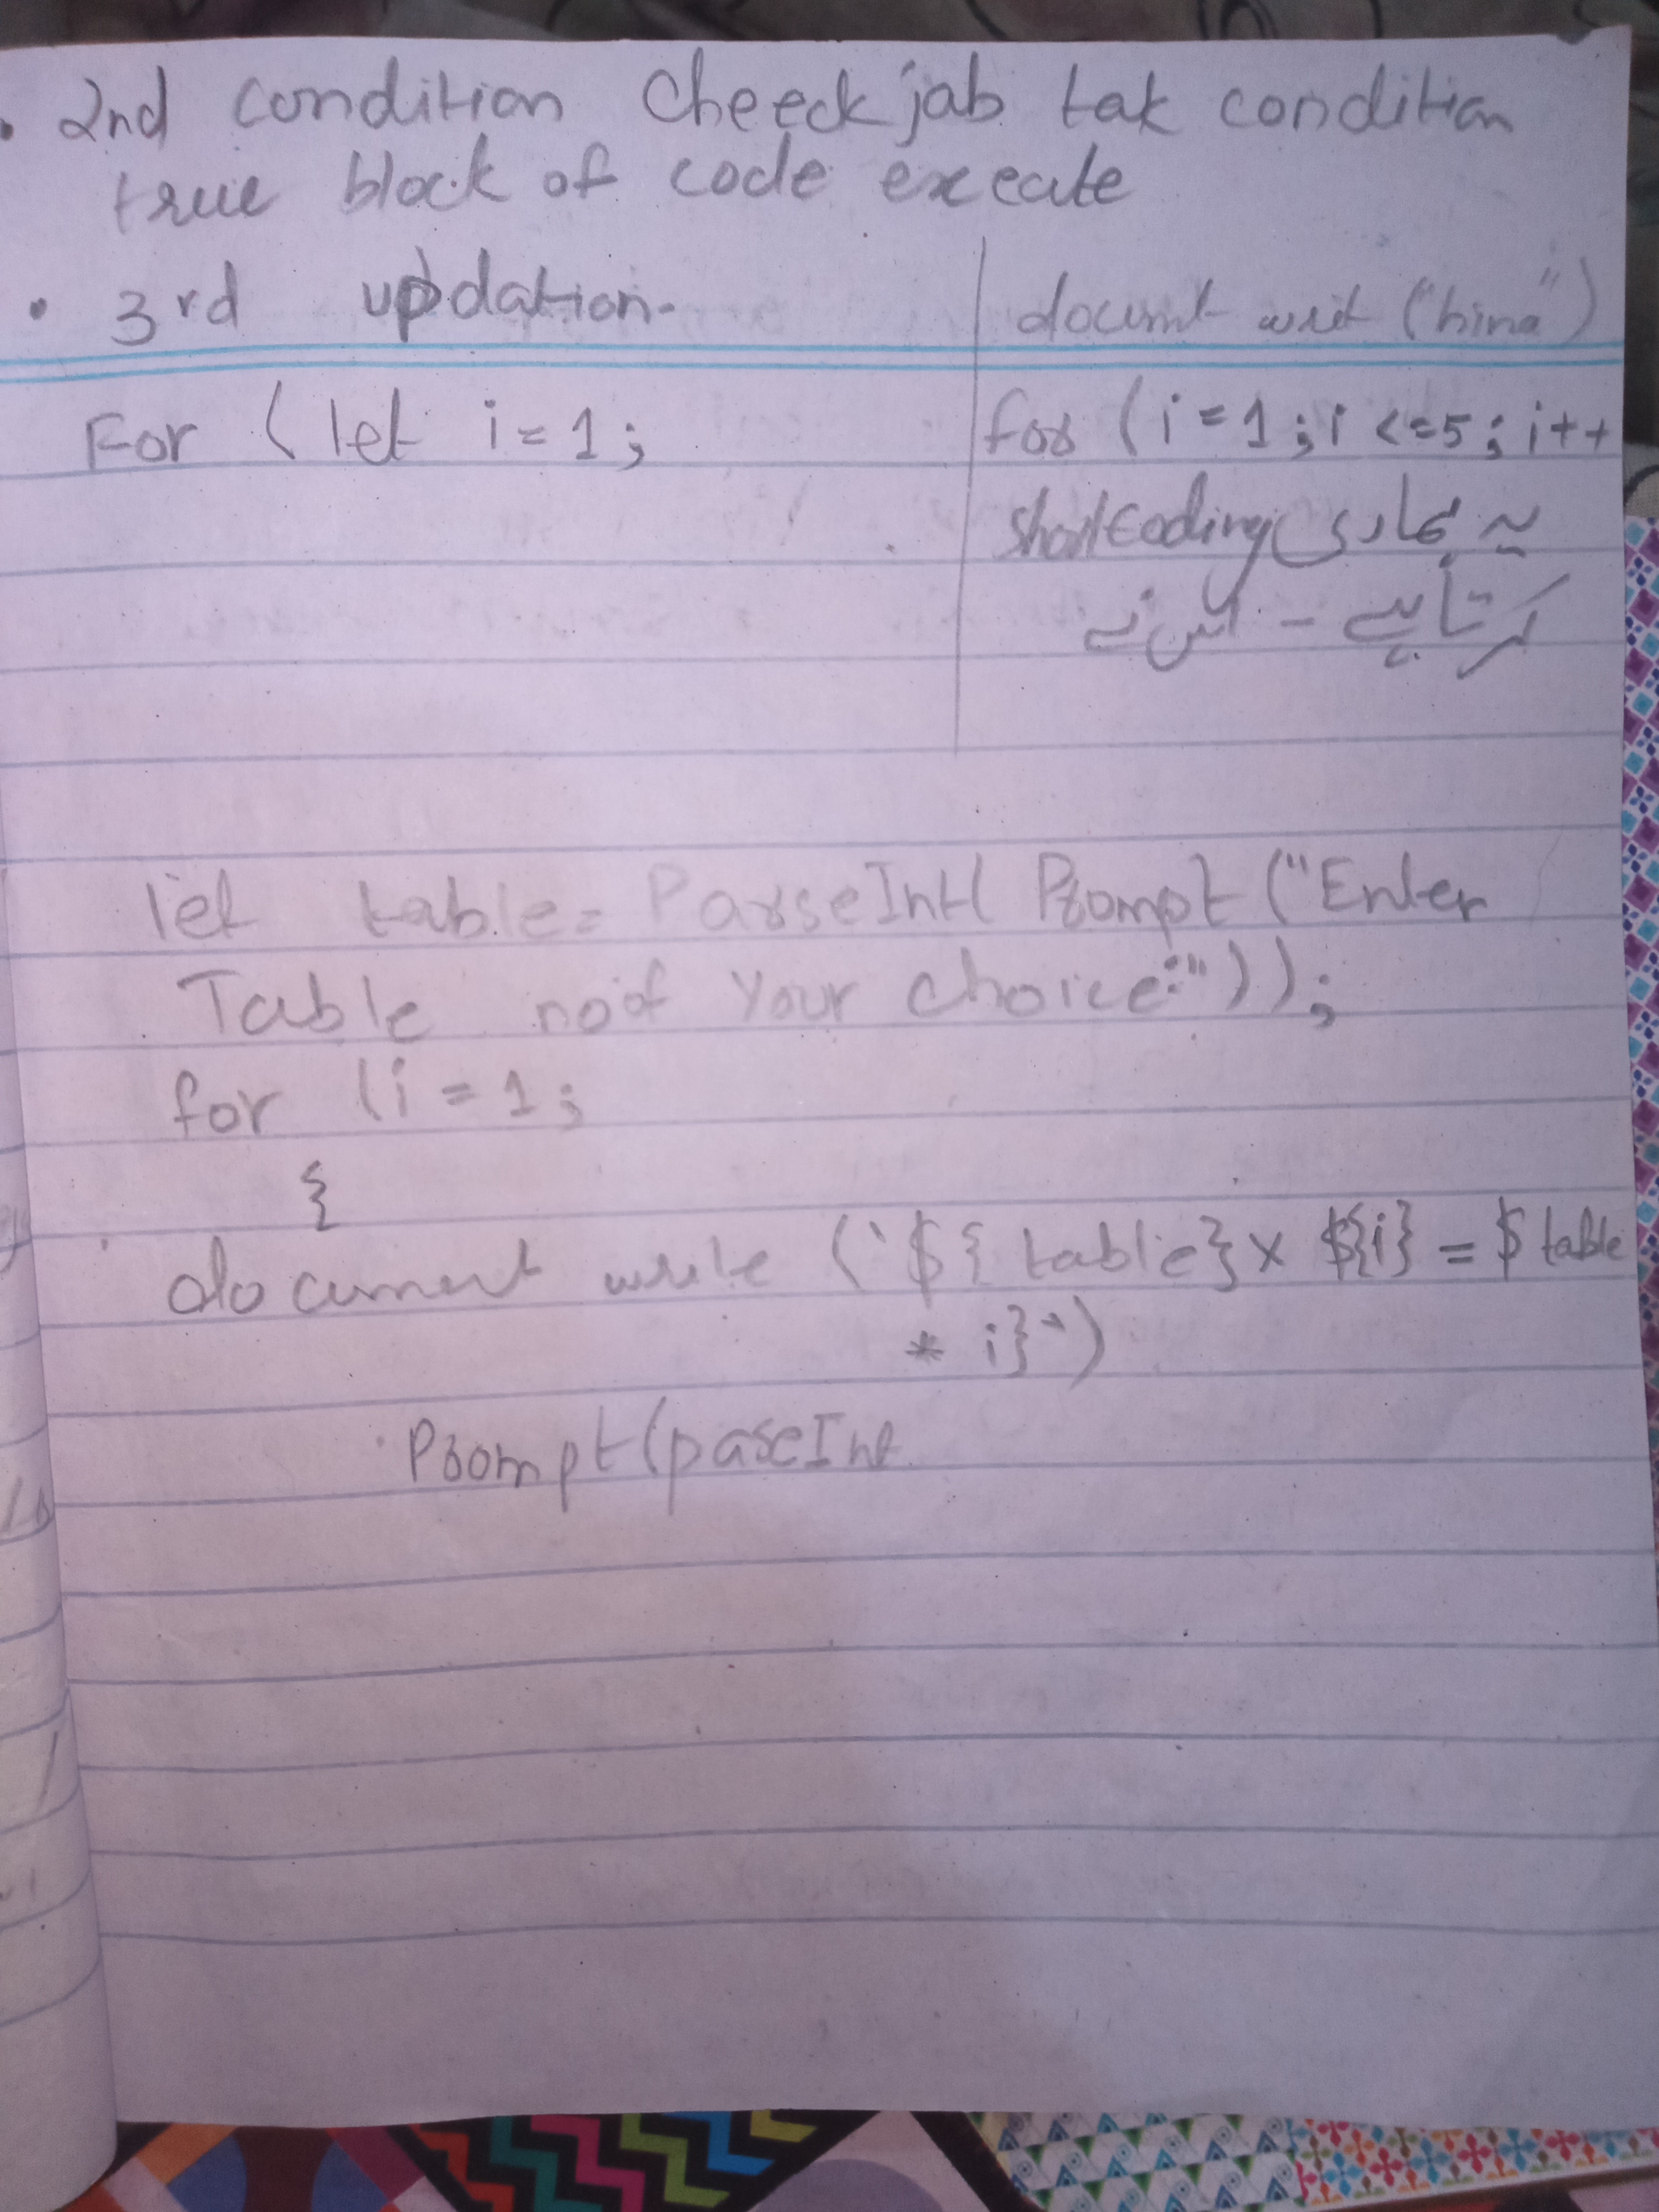 . 2nd condition Cheeck jab tak condition
true block of code execute
• 3rd updation.
For ( let i = 1 ;
documt writ ("hina")
for ( i = 1 ; i <= 5 ; i++
یہ ہماری short coding
کرتا ہے - اس نے
let table = ParseInt( Prompt ("Enter
Table no of Your choice:"));
for (i = 1 ;
{
document write (`${ table} x ${i} = $ table
* i}`)
Prompt (paseInt